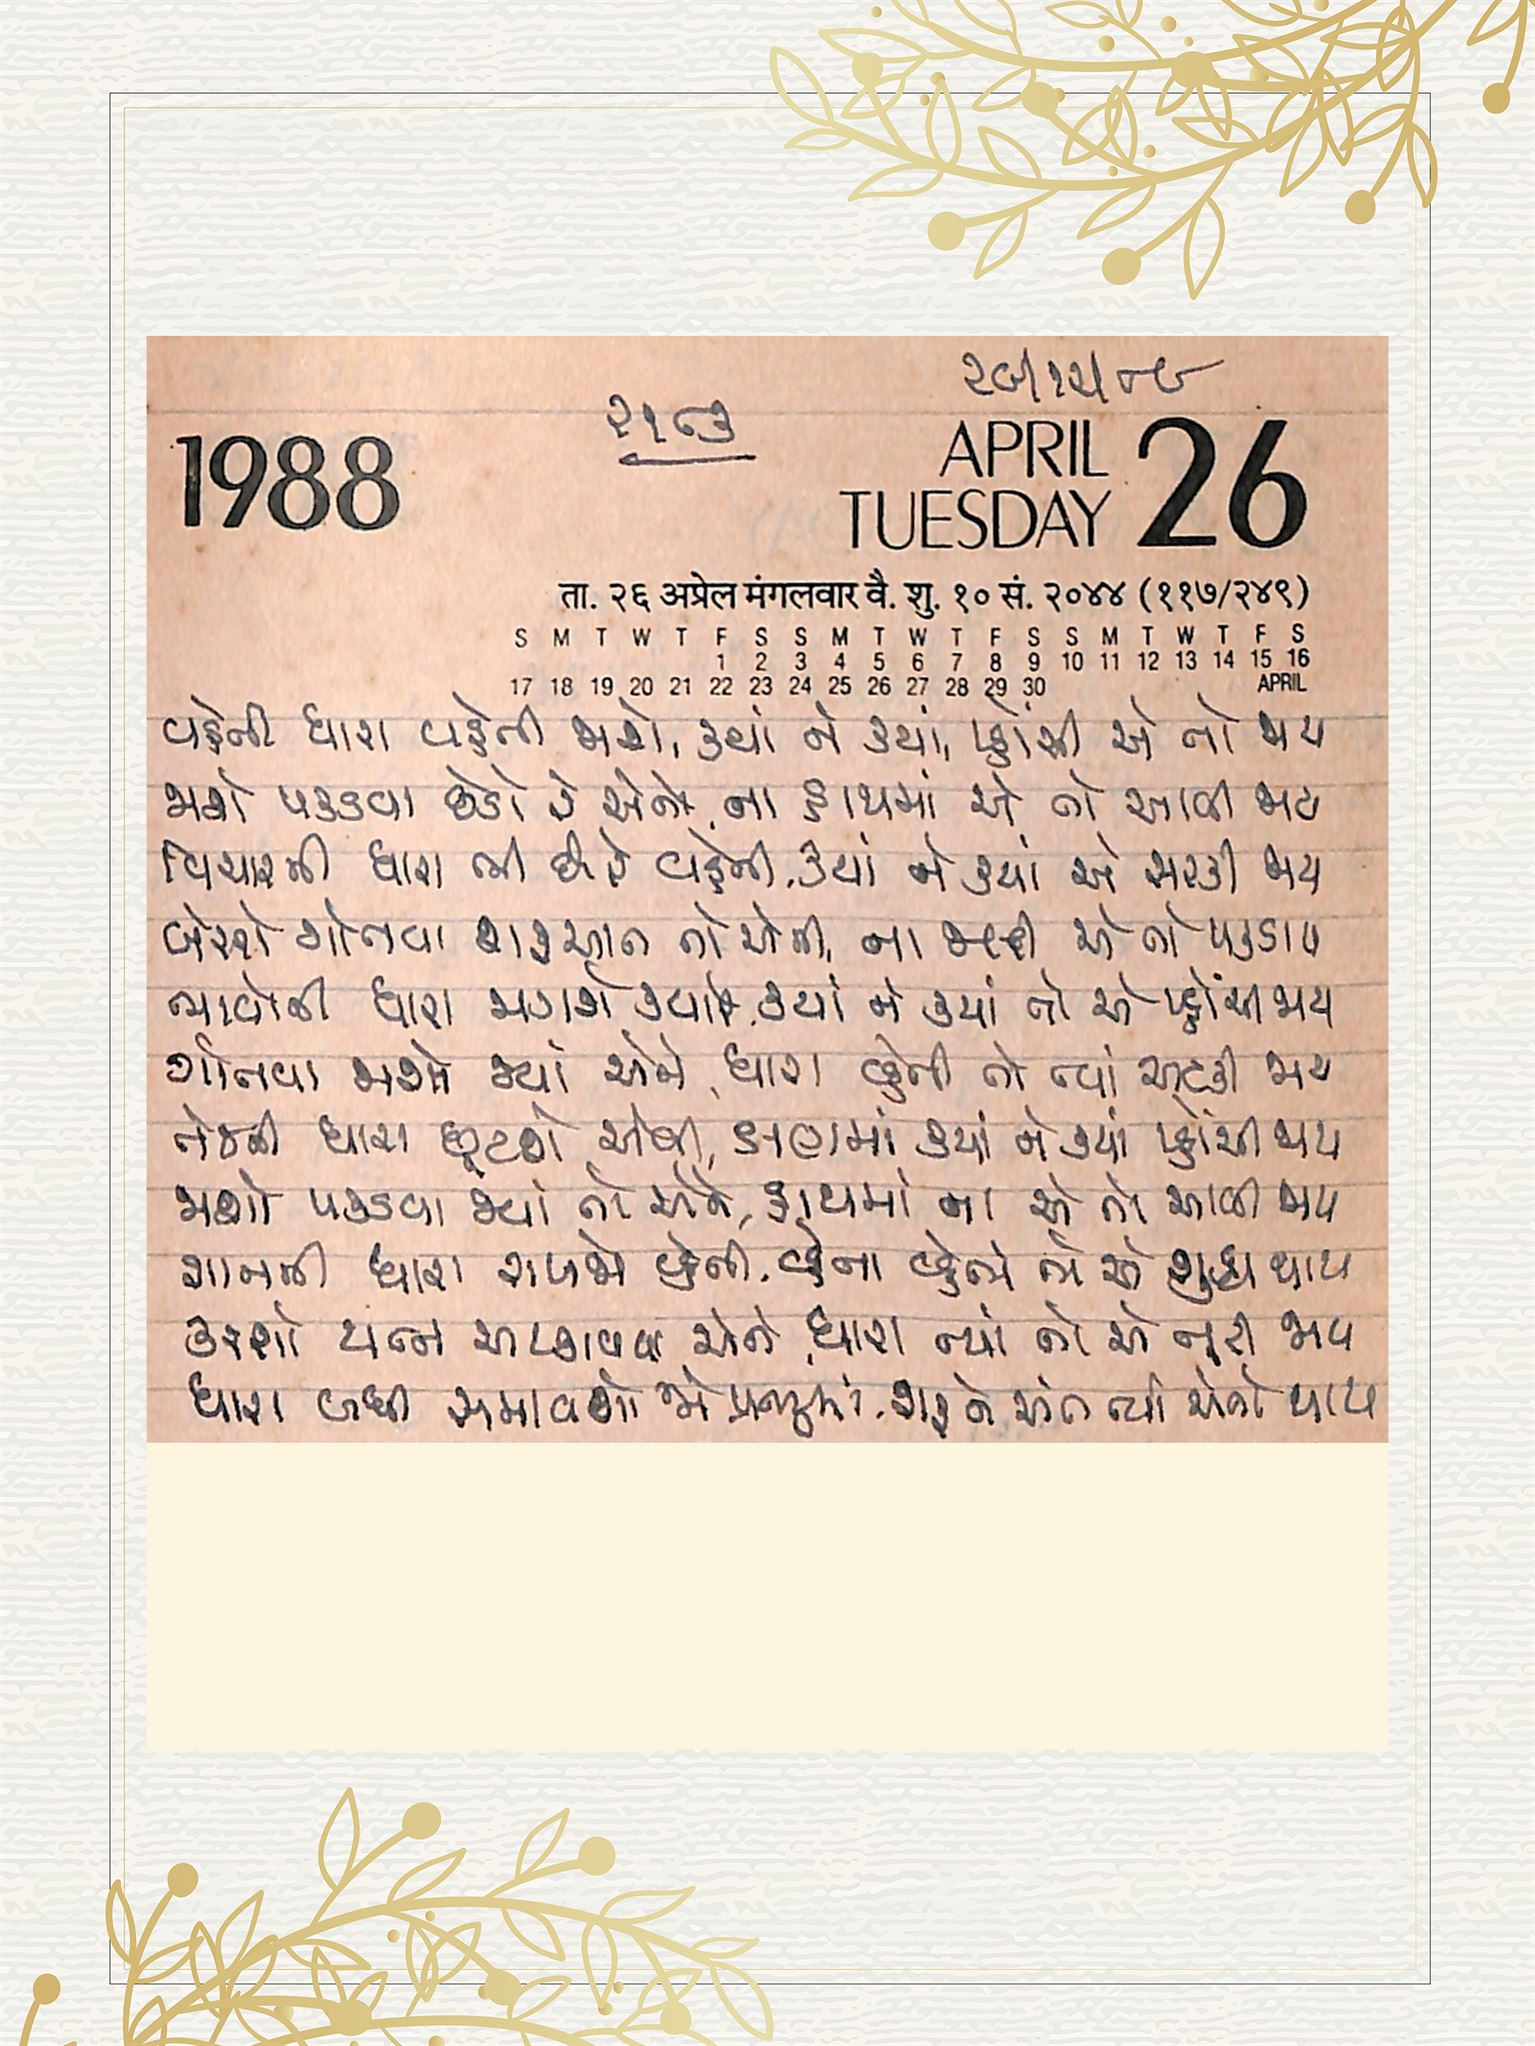 ૨૯/૧૨/૮૯
૨૧૯૩
1988
APRIL 26
TUESDAY
ता. २६ अप्रेल मंगलवार वै. शु. १० सं. २०४४ (११७/२४९)
S M T W T F S S M T W T F S S M T W T F S
1 2 3 4 5 6 7 8 9 10 11 12 13 14 15 16
17 18 19 20 21 22 23 24 25 26 27 28 29 30 APRIL
વહેતી ધારા વહેતી જાશે, ક્યાં ને ક્યાં, પ્હોંચી એ તો જાય
જાશો પકડવા છેડો રે એનો, ના હાથમાં એ તો આવી જાય
વિચારની ધારા ભી છે રે વહેતી, ક્યાં ને ક્યાં એ સરકી જાય
બેસશો ગોતવા શરૂઆત તો એની, ના જલ્દી એ તો પકડાય
ભાવોની ધારા જાગશે ક્યારે, ક્યાં ને ક્યાં તો એ પ્હોંચી જાય
ગોતવા જાશો જ્યાં એને, ધારા વ્હેતી તો ત્યાં અટકી જાય
તેજની ધારા છૂટશે એવી, ક્ષણમાં ક્યાં ને ક્યાં પ્હોંચી જાય
જાશો પકડવા જ્યાં તો એને, હાથમાં ના એ તો આવી જાય
જ્ઞાનની ધારા રાખજો વ્હેતી, વ્હેતા વ્હેતા તો એ શુદ્ધ થાય
કરશો યત્ન અટકાવવા એને, ધારા ત્યાં તો એ તૂટી જાય
ધારા બધી સમાવશો જો પ્રભુમાં, શરૂ ને અંત ત્યાં એનો થાય